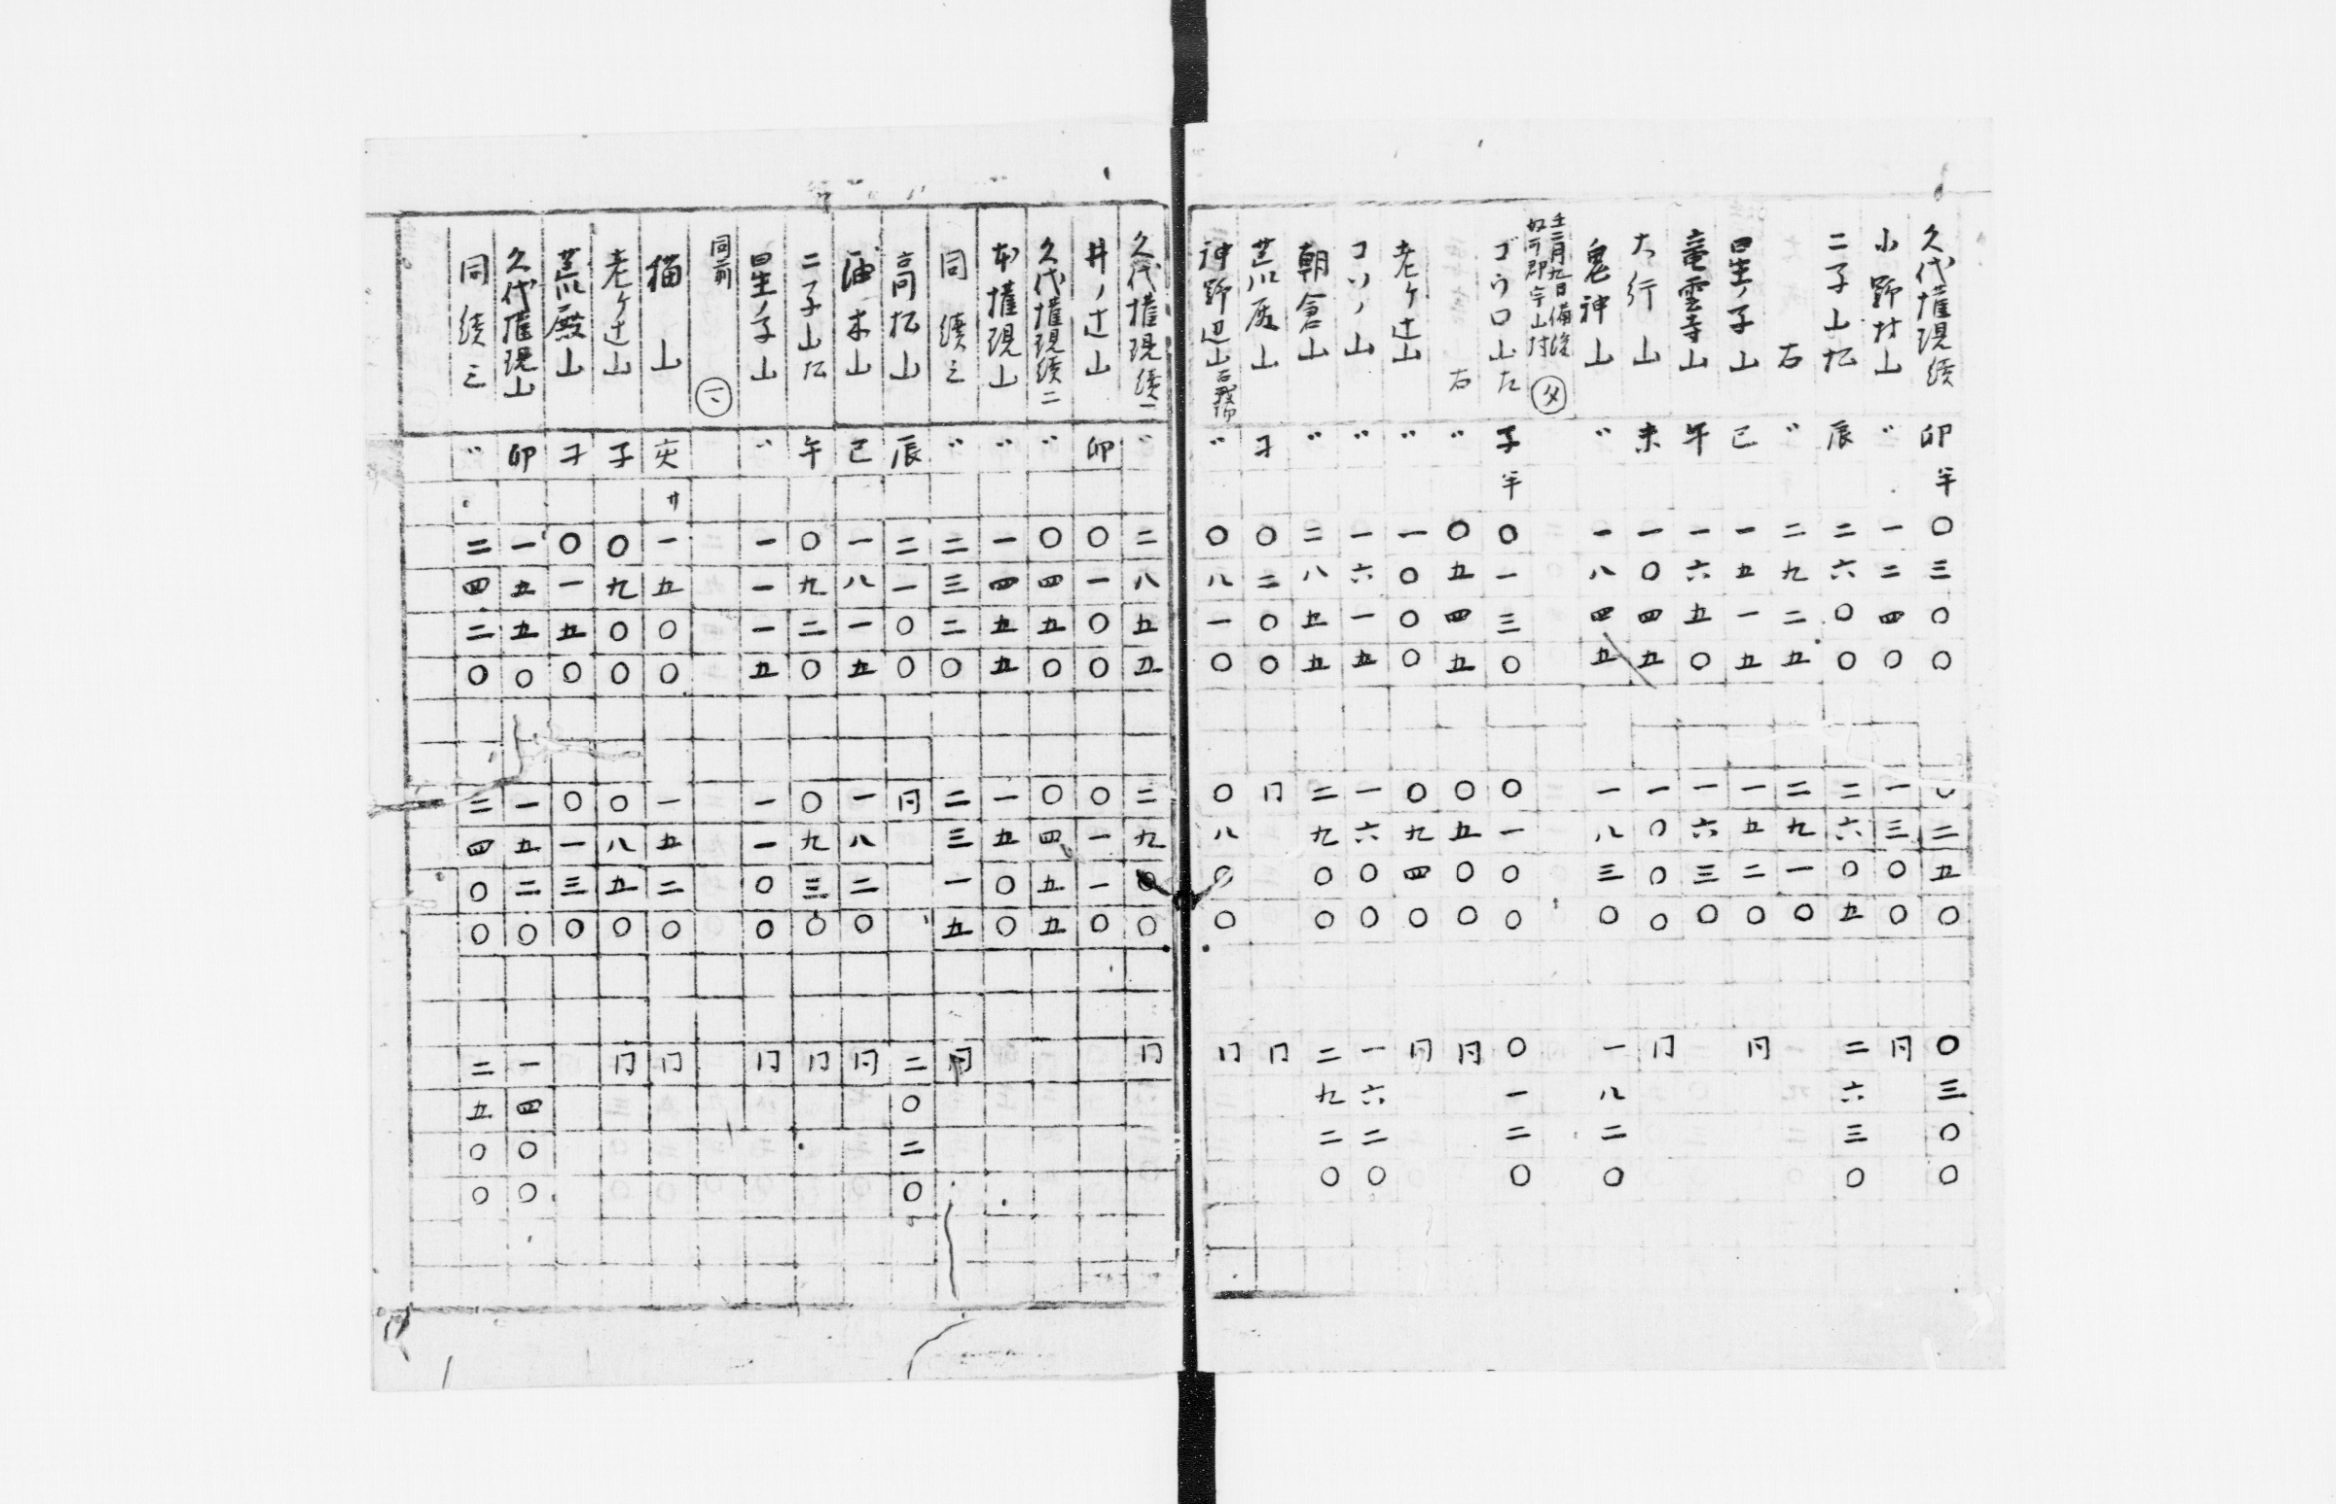 久代権現続 卯半 〇三〇〇 〇二五〇 〇三〇〇
小野村山 〃 一二四〇 一三〇〇 同
二子山 辰 二六〇〇 二六〇五 二六三〇
右 〃 二九二五 二九一〇
星ノ子山 巳 一五一五 一五二〇 同
竜雲寺山 午 一六五〇 一六三〇
大行山 未 一〇四五 一〇〇〇 同
鬼神山 〃 一八四五 一八三〇 一八二〇
壬三月九日備後
奴可郡宇山村
ゴウロ山左 子半 〇一三〇 〇一〇〇 〇一二〇
右 〃 〇五四五 〇五〇〇 同
老ケ辻山 〃 一〇〇〇 〇九四〇 同
コソノ山 〃 一六一五 一六〇〇 一六二〇
朝倉山 〃 二八五五 二九〇〇 二九二〇
荒川殿山 丑 〇二〇〇 同 同
神野辺山 〃 〇八一〇 〇八〇〇 同
久代権現続一 〃 二八五五 二九〇〇 同
井ノ辻山 卯 〇一〇〇 〇一一〇
久代権現続二 〃 〇四五〇 〇四五五
本権現山 〃 一四五五 一五〇〇
同続三 〃 二三二〇 二三一五 同
高山 辰 二一〇〇 同 二〇二〇
油木山 巳 一八一五 一八二〇 同
二子山 午 〇九二〇 〇九三〇 同
星ノ子山 〃 一一一五 一一〇〇 同
同前
猫山 亥 一五〇〇 一五二〇 同
老ケ辻山 子 〇九〇〇 〇八五〇 同
荒川殿山 丑 〇一五〇 〇一三〇
久代権現山 卯 一五五〇 一五二〇 一四〇〇
同続三 〃 二四二〇 二四〇〇 二五〇〇